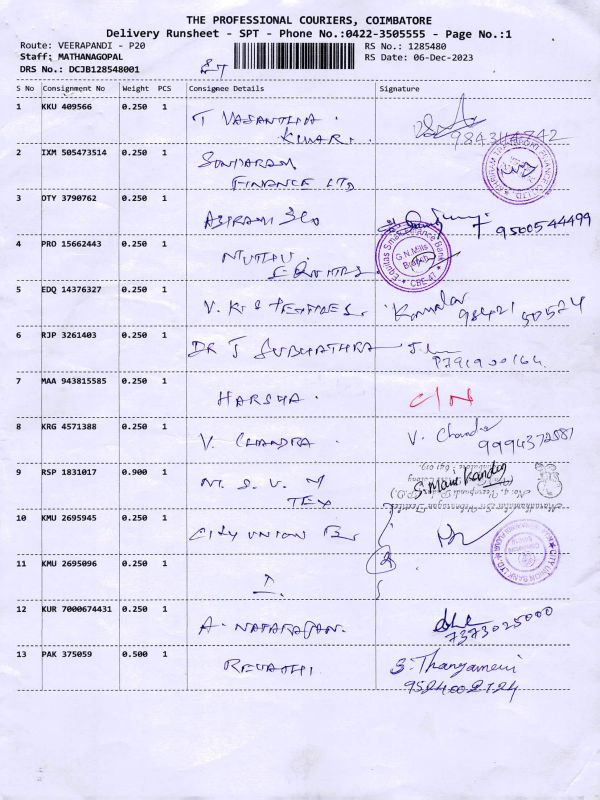 THE PROFESSIONAL COURIERS, COIMBATORE
Delivery Runsheet - SPT - Phone No.:0422-3505555 - Page No.:1
Route: VEERAPANDI - P20 RS No.: 1285480
Staff: MATHANAGOPAL RS Date: 06-Dec-2023
DRS No.: DCJB128548001
S No Consignment No Weight PCS Consignee Details Signature
1 KKU 409566 0.250 1 T VASANTHA
KUMARI.
2 IXM 505473514 0.250 1 SUNDARAM
FINANCE LTD
3 DTY 3790762 0.250 1
9500544499
4 PRO 15662443 0.250 1
Equitas Small Finance Bank
G.N.Mills
CBE-47
5 EDQ 14376327 0.250 1 V.K.S TEXTILES. Kamala
98421 50524
6 RJP 3261403 0.250 1 DR J SUBHATHRA
7 MAA 943815585 0.250 1 HARSHA. C/N
8 KRG 4571388 0.250 1 V. CHANDRA. V. Chandra
9994372581
9 RSP 1831017 0.900 1 M.S.V.M S.Manikandan
TEX
10 KMU 2695945 0.250 1 CITY UNION
CITY UNION BANK LTD
11 KMU 2695096 0.250 1
12 KUR 7000674431 0.250 1 A. NATARAJAN.
7373025000
13 PAK 375059 0.500 1 REVATHI S. Thangamani
9524002724